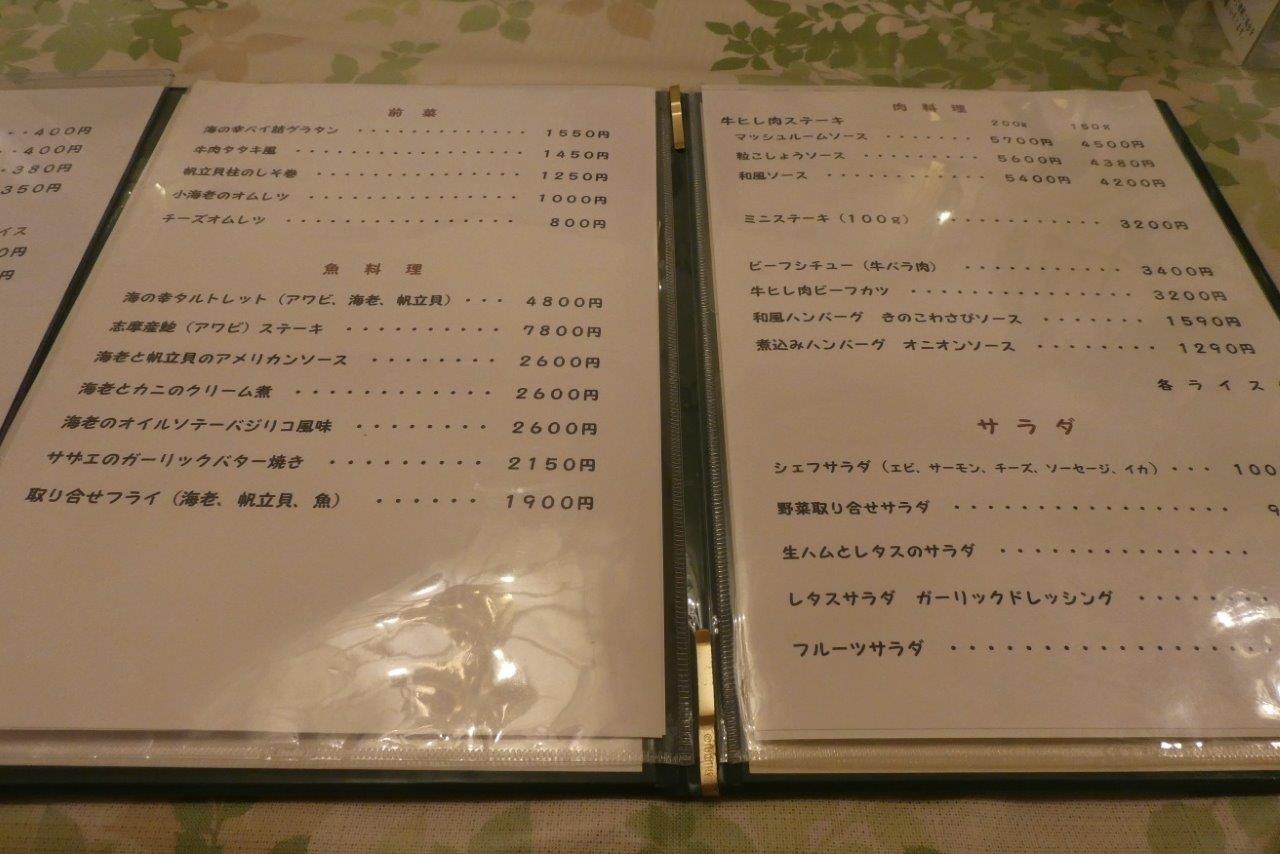 ・・400円
・・400円
・380円
350円
イス
0円
円
前菜
海の幸パイ詰グラタン ・・・・・・・・・・・ 1550円
牛肉タタキ風 ・・・・・・・・・・・・・・・ 1450円
帆立貝柱のしそ巻 ・・・・・・・・・・・・・ 1250円
小海老のオムレツ ・・・・・・・・・・・・・ 1000円
チーズオムレツ ・・・・・・・・・・・・・・ 800円
魚料理
海の幸タルトレット（アワビ、海老、帆立貝）・・・ 4800円
志摩産鮑（アワビ）ステーキ ・・・・・・・・・ 7800円
海老と帆立貝のアメリカンソース ・・・・・・・ 2600円
海老とカニのクリーム煮 ・・・・・・・・・・・ 2600円
海老のオイルソテーバジリコ風味 ・・・・・・・ 2600円
サザエのガーリックバター焼き ・・・・・・・・ 2150円
取り合せフライ（海老、帆立貝、魚） ・・・・・・ 1900円
肉料理
牛ヒレ肉ステーキ 200g 150g
マッシュルームソース ・・・・・・・ 5700円 4500円
粒こしょうソース ・・・・・・・・・ 5600円 4380円
和風ソース ・・・・・・・・・・・・ 5400円 4200円
ミニステーキ（100g） ・・・・・・・・・・ 3200円
ビーフシチュー（牛バラ肉） ・・・・・・・・・・・ 3400円
牛ヒレ肉ビーフカツ ・・・・・・・・・・・・・ 3200円
和風ハンバーグ きのこわさびソース ・・・・・・・ 1590円
煮込みハンバーグ オニオンソース ・・・・・・・・ 1290円
各ライス
サラダ
シェフサラダ（エビ、サーモン、チーズ、ソーセージ、イカ）・・・ 100
野菜取り合せサラダ ・・・・・・・・・・・・・・・ 9
生ハムとレタスのサラダ ・・・・・・・・・・・・・・
レタスサラダ ガーリックドレッシング ・・・・・・・
フルーツサラダ ・・・・・・・・・・・・・・・・・